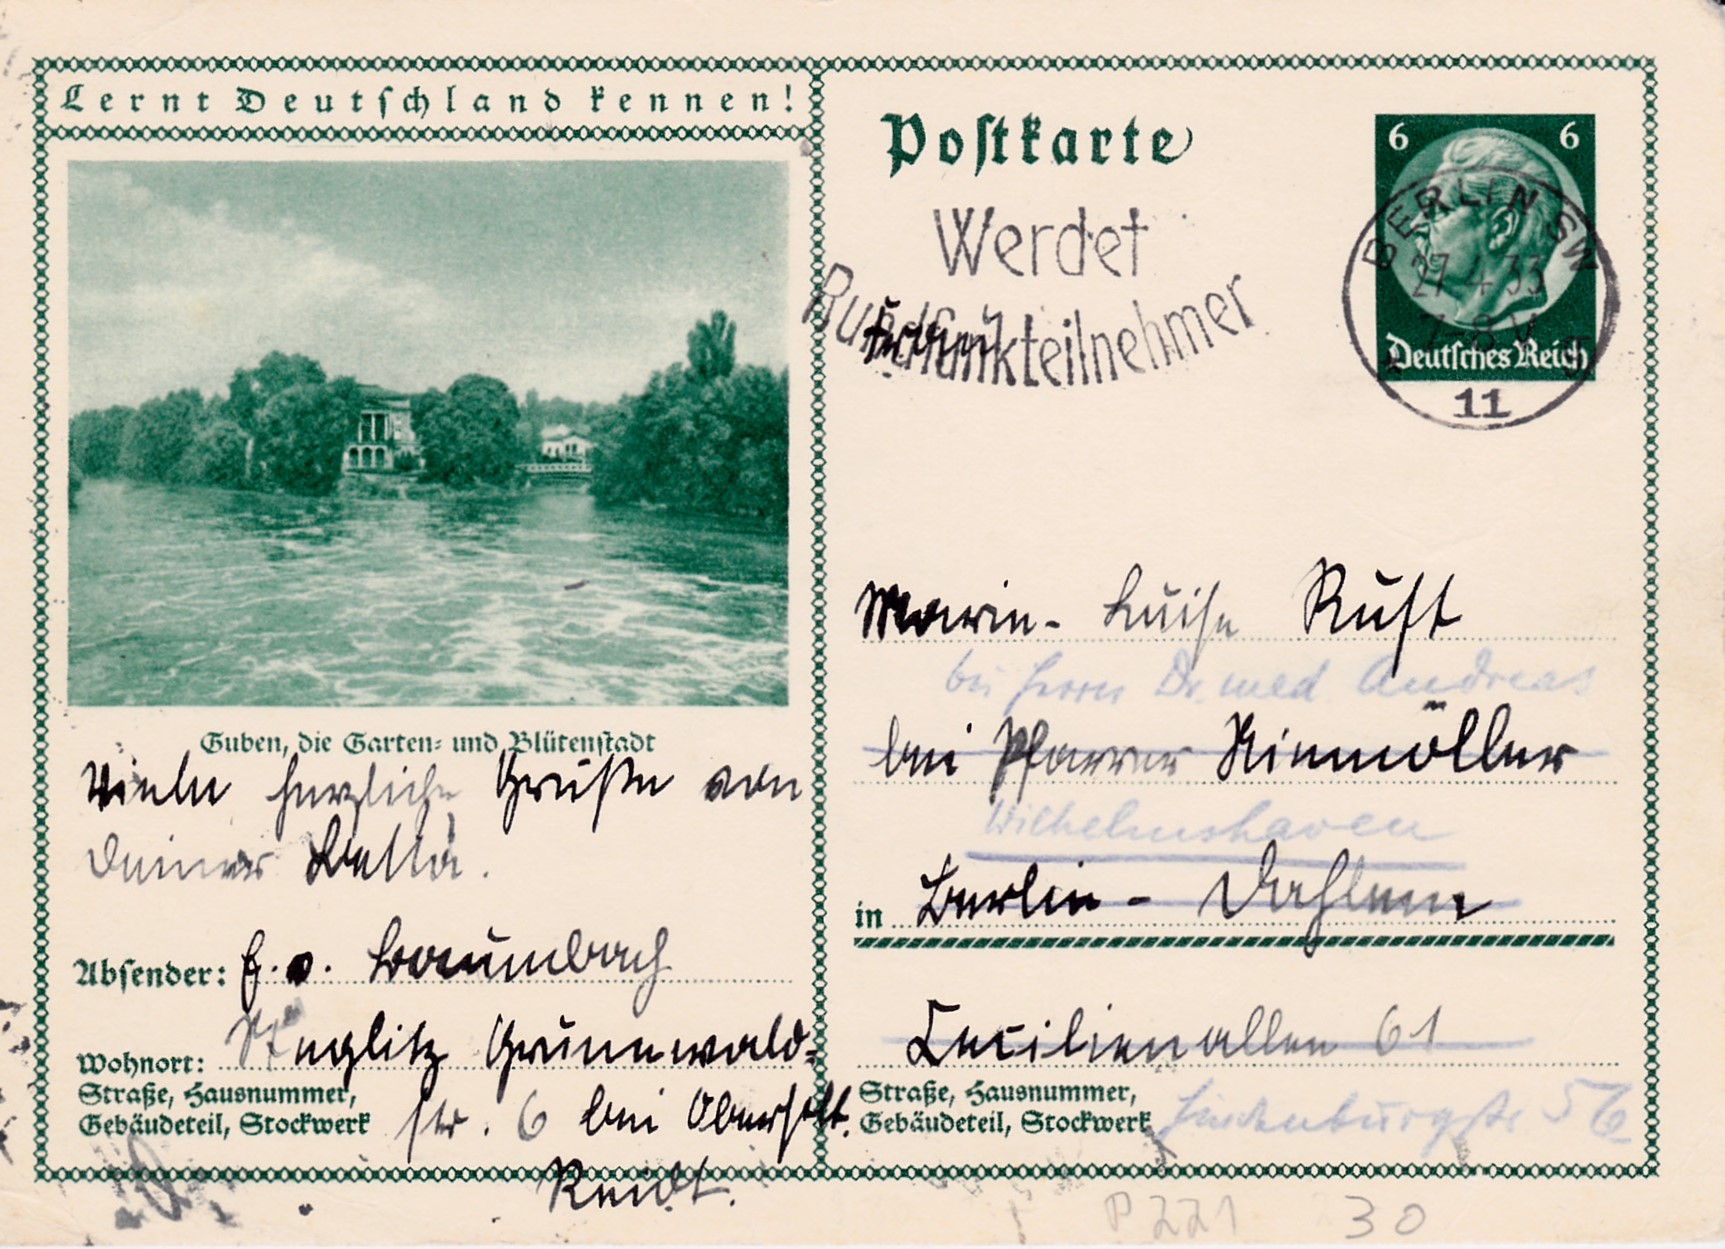 Lernt Deutschland kennen!
Guben, die Garten- und Blütenstadt
Viele herzliche Grüße von
Deiner
Absender: E. v. Baumbach
Wohnort: Steglitz Grunewald-
Straße, Hausnummer,
Gebäudeteil, Stockwerk
str. 6 bei Oberstlt.
Reidt.
Postkarte
Werdet
Rundfunkteilnehmer
6 6
Deutsches Reich
BERLIN SW
27.4.33
7-8 V
11
Marie-Luise Rust
bei Herrn Dr. med Andreas
bei Pfarrer Niemöller
Wilhelmshaven
in Berlin-Dahlem
Cecilienallee 61
Straße, Hausnummer,
Gebäudeteil, Stockwerk
Hindenburgstr 56
P 221 30